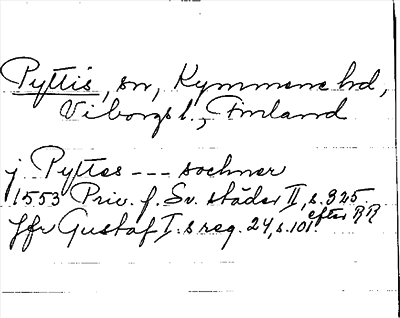 Pyttis, sn, Kymmene hd,
Viborgs l., Finland
j Pyttes --- sochner
1553 Priv. f. Sv. städer II, s. 325
efter RR
Jfr Gustaf I:s reg. 24, s. 101.